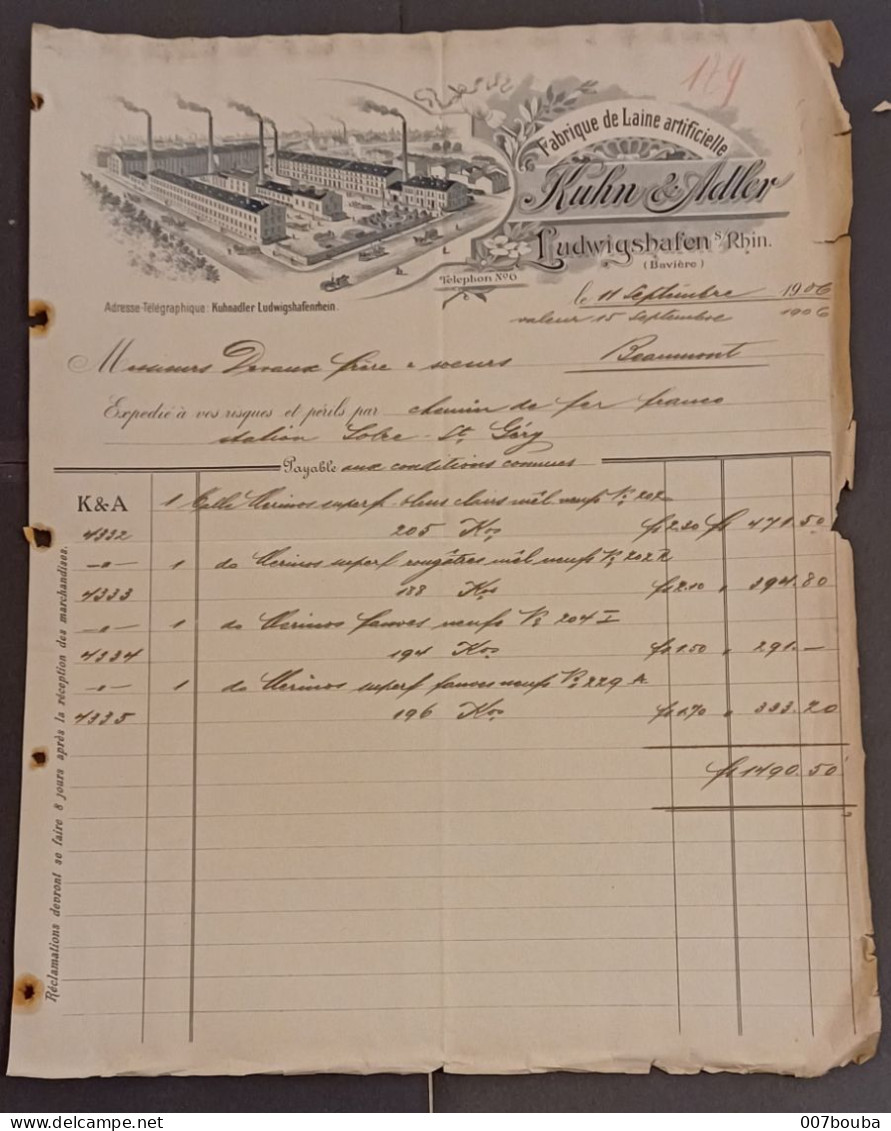 179
Fabrique de Laine artificielle
Kuhn & Adler
Ludwigshafen s/Rhin.
(Bavière)
Telephon No 6
Adresse Télégraphique: Kuhnadler Ludwigshafenrhein.
le 11 Septembre 1906
valeur 15 Septembre 1906
Messieurs Devaux frère & soeurs Beaumont
Expedié à vos risques et périls par chemin de fer franco
station Solre-St. Géry
Payable aux conditions connues
K & A 1 Balle Merinos superf bleus clairs mêl neufs No 202
4332 205 Kos fs 2.30 fs 471.50
-"- 1 do Merinos superf rougâtres mêl neufs No 202 R
4333 188 Kos fs 2.10 " 394.80
-"- 1 do Merinos fauves neufs No 204 I
4334 194 Kos fs 1.50 " 291.-
-"- 1 do Merinos superf fauves neufs No 229 A.
4335 196 Kos fs 1.70 " 333.20
fs 1490.50
Réclamations devront se faire 8 jours après la réception des marchandises.
007bouba